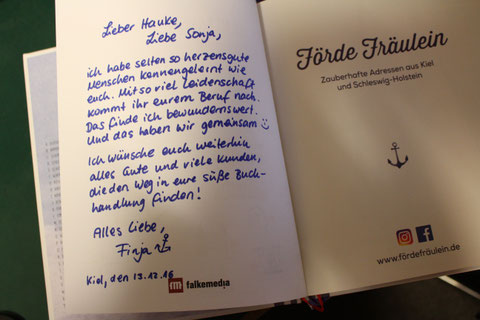 Lieber Hauke,
Liebe Sonja,
ich habe selten so herzensgute
Menschen kennengelernt wie
euch. Mit so viel Leidenschaft
kommt ihr eurem Beruf nach.
Das finde ich bewundernswert.
Und das haben wir gemeinsam
Ich wünsche euch weiterhin
alles Gute und viele Kunden,
die den Weg in eure süße Buch-
handlung finden!
Alles Liebe,
Finja
Kiel, den 13.12.16
falkemedia
Förde Fräulein
Zauberhafte Adressen aus Kiel
und Schleswig-Holstein
www.fördefräulein.de